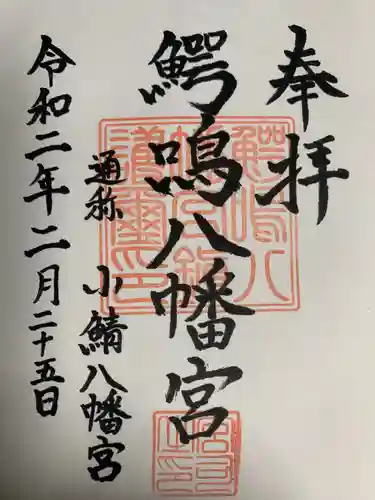 奉拝
鰐鳴八幡宮
通称 小鯖八幡宮
令和二年二月二十五日